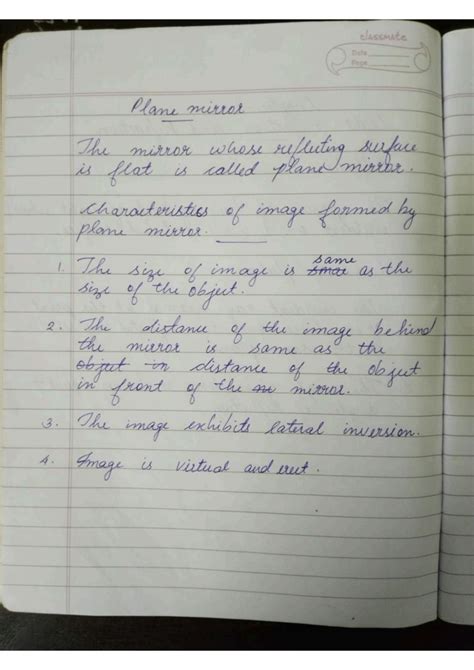 classmate
Date
Page
Plane mirror
The mirror whose reflecting surface
is flat is called plane mirror.
Characteristics of image formed by
plane mirror.
same
1. The size of image is as the
size of the object.
2. The distance of the image behind
the mirror is same as the
object in distance of the object
in front of the mirror.
3. The image exhibits lateral inversion.
4. Image is virtual and erect.